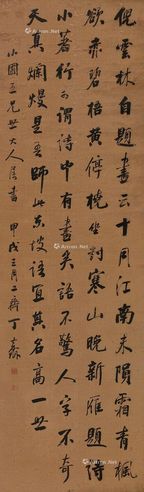 倪雲林自題畫云十月江南未隕霜青楓
欲赤碧梧黃停橈坐對寒山晚新雁題詩
小著行可謂詩中有畫矣語不驚人字不奇
天真爛熳是吾師此東坡語宜其名高一世
小圃五兄世大人屬書 甲戌三月二齋丁